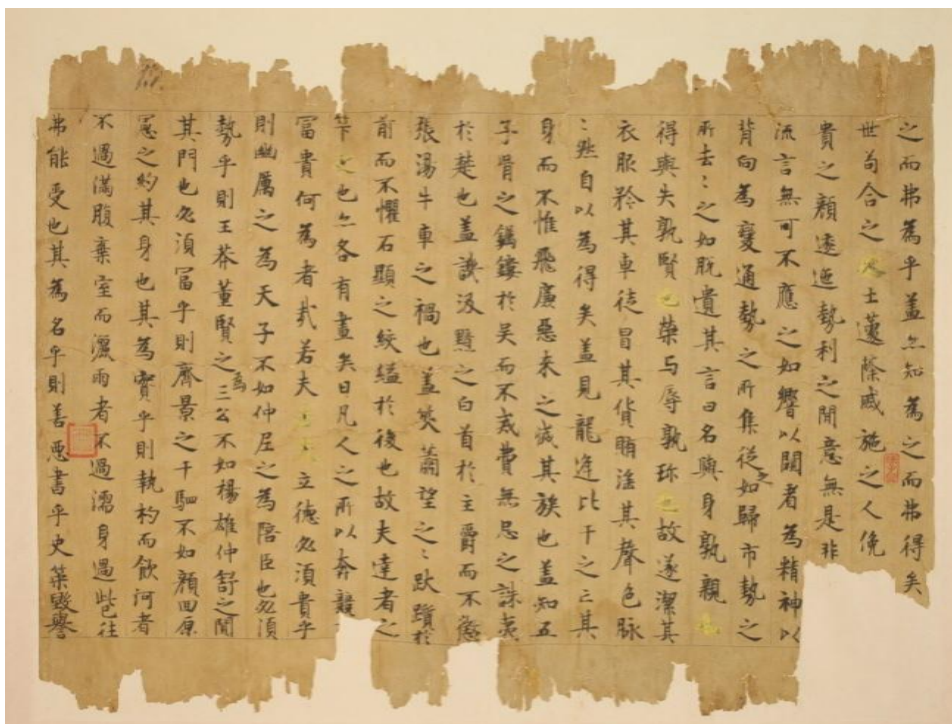 之而弗為乎盖亦知為之而弗得矣
世苟合之士蘧蒢戚施之人俛
貴之顔逶迤勢利之間意無是非
流言無可不應之如響以闚看為精神以
背向為變通勢之所集從之如歸市勢之
所去〻之如脫遺其言曰名與身孰親也
得與失孰賢也榮与辱孰珎也故遂潔其
衣服矜其車徒冒其貨賄淫其聲色脉
〻然自以為得矣盖見龍逢比干之亡其
身而不惟飛廉惡来之滅其族也盖知五
子胥之鐲鏤於吴而不戒費無忌之誅夷
於楚也盖譏汲黯之白首於主爵而不懲
張湯牛車之禍也盖笑蕭望之〻跋躓於
前而不懼石顯之絞縊於後也故夫達者之
筭也亦各有盡矣曰凡人之所以奔競
富貴何為者㢤若夫立德必須貴乎
則幽厲之為天子不如仲尼之為陪臣也必須
勢乎則王莽董賢之為三公不如楊雄仲舒之闃
其門也必須富乎則齊景之千駟不如顔回原
憲之約其身也其為實乎則執杓而飲河者
不過滿腹棄室而灑雨者不過濡身過此已往
弗能受也其為名乎則善惡書乎史筞毀譽